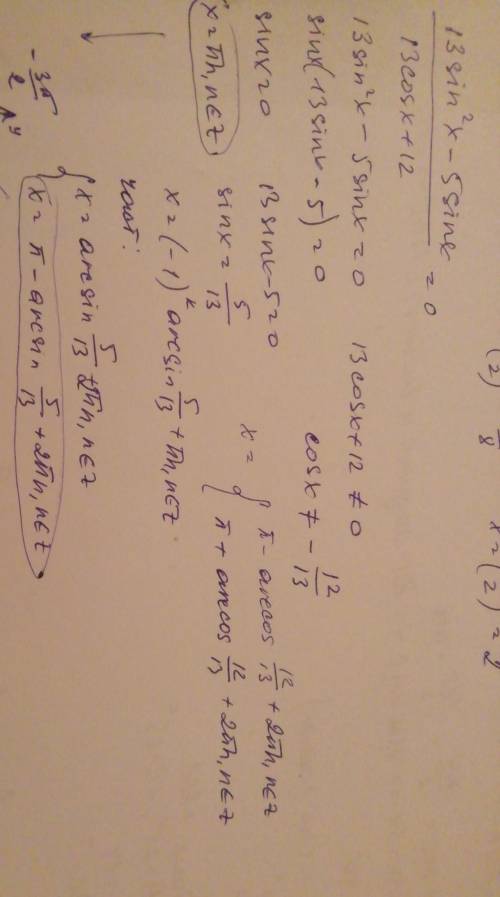 (13sin²x − 5sinx)/(13cosx + 12) = 0
13sin²x − 5sinx = 0 13cosx + 12 ≠ 0
sinx(13sinx − 5) = 0 cosx ≠ − 12/13
sinx = 0 13sinx − 5 = 0 x = { π − arccos 12/13 + 2πn, n∈z
x = πn, n∈z sinx = 5/13 π + arccos 12/13 + 2πn, n∈z
x = (−1)ᵏ arcsin 5/13 + πn, n∈z
{ x = arcsin 5/13 + 2πn, n∈z
x = π − arcsin 5/13 + 2πn, n∈z.
− 3π/2
y
(2) 8 x = (2) = 2